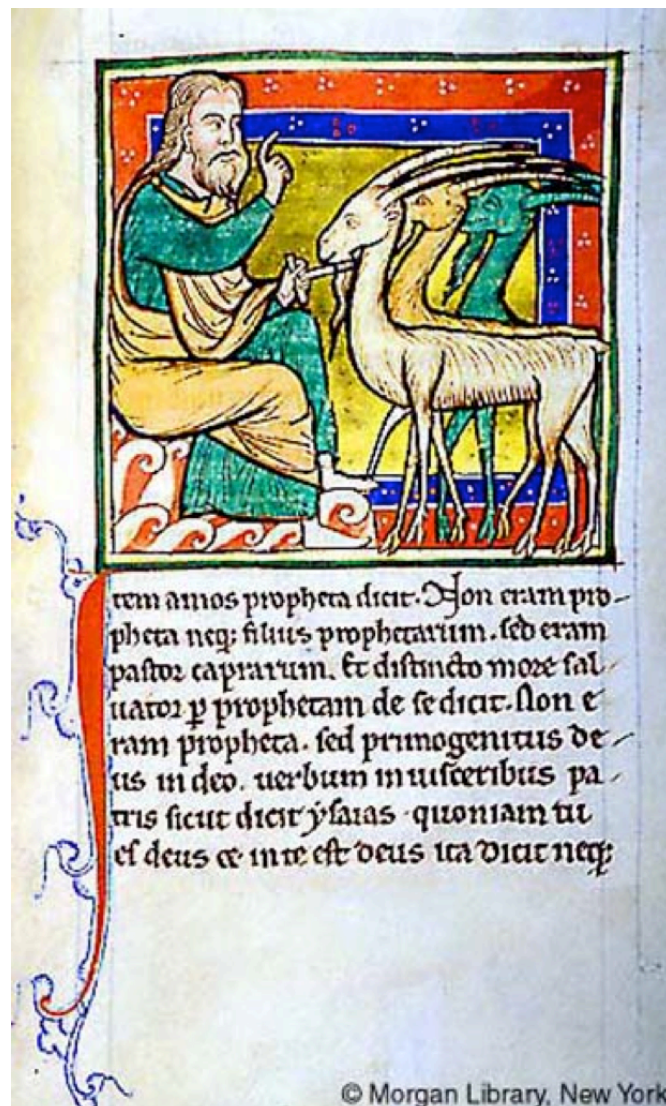 Item amos propheta dicit. Non eram pro-
pheta neq; filius prophetarum. sed eram
pastor caprarum. Et distincto more sal-
uator p prophetam de se dicit. Non e
ram propheta. sed primogenitus de-
us in deo. uerbum in uisceribus pa-
tris sicut dicit ysaias. quoniam tu
es deus ce in te est deus ita dicit neq;
© Morgan Library, New York